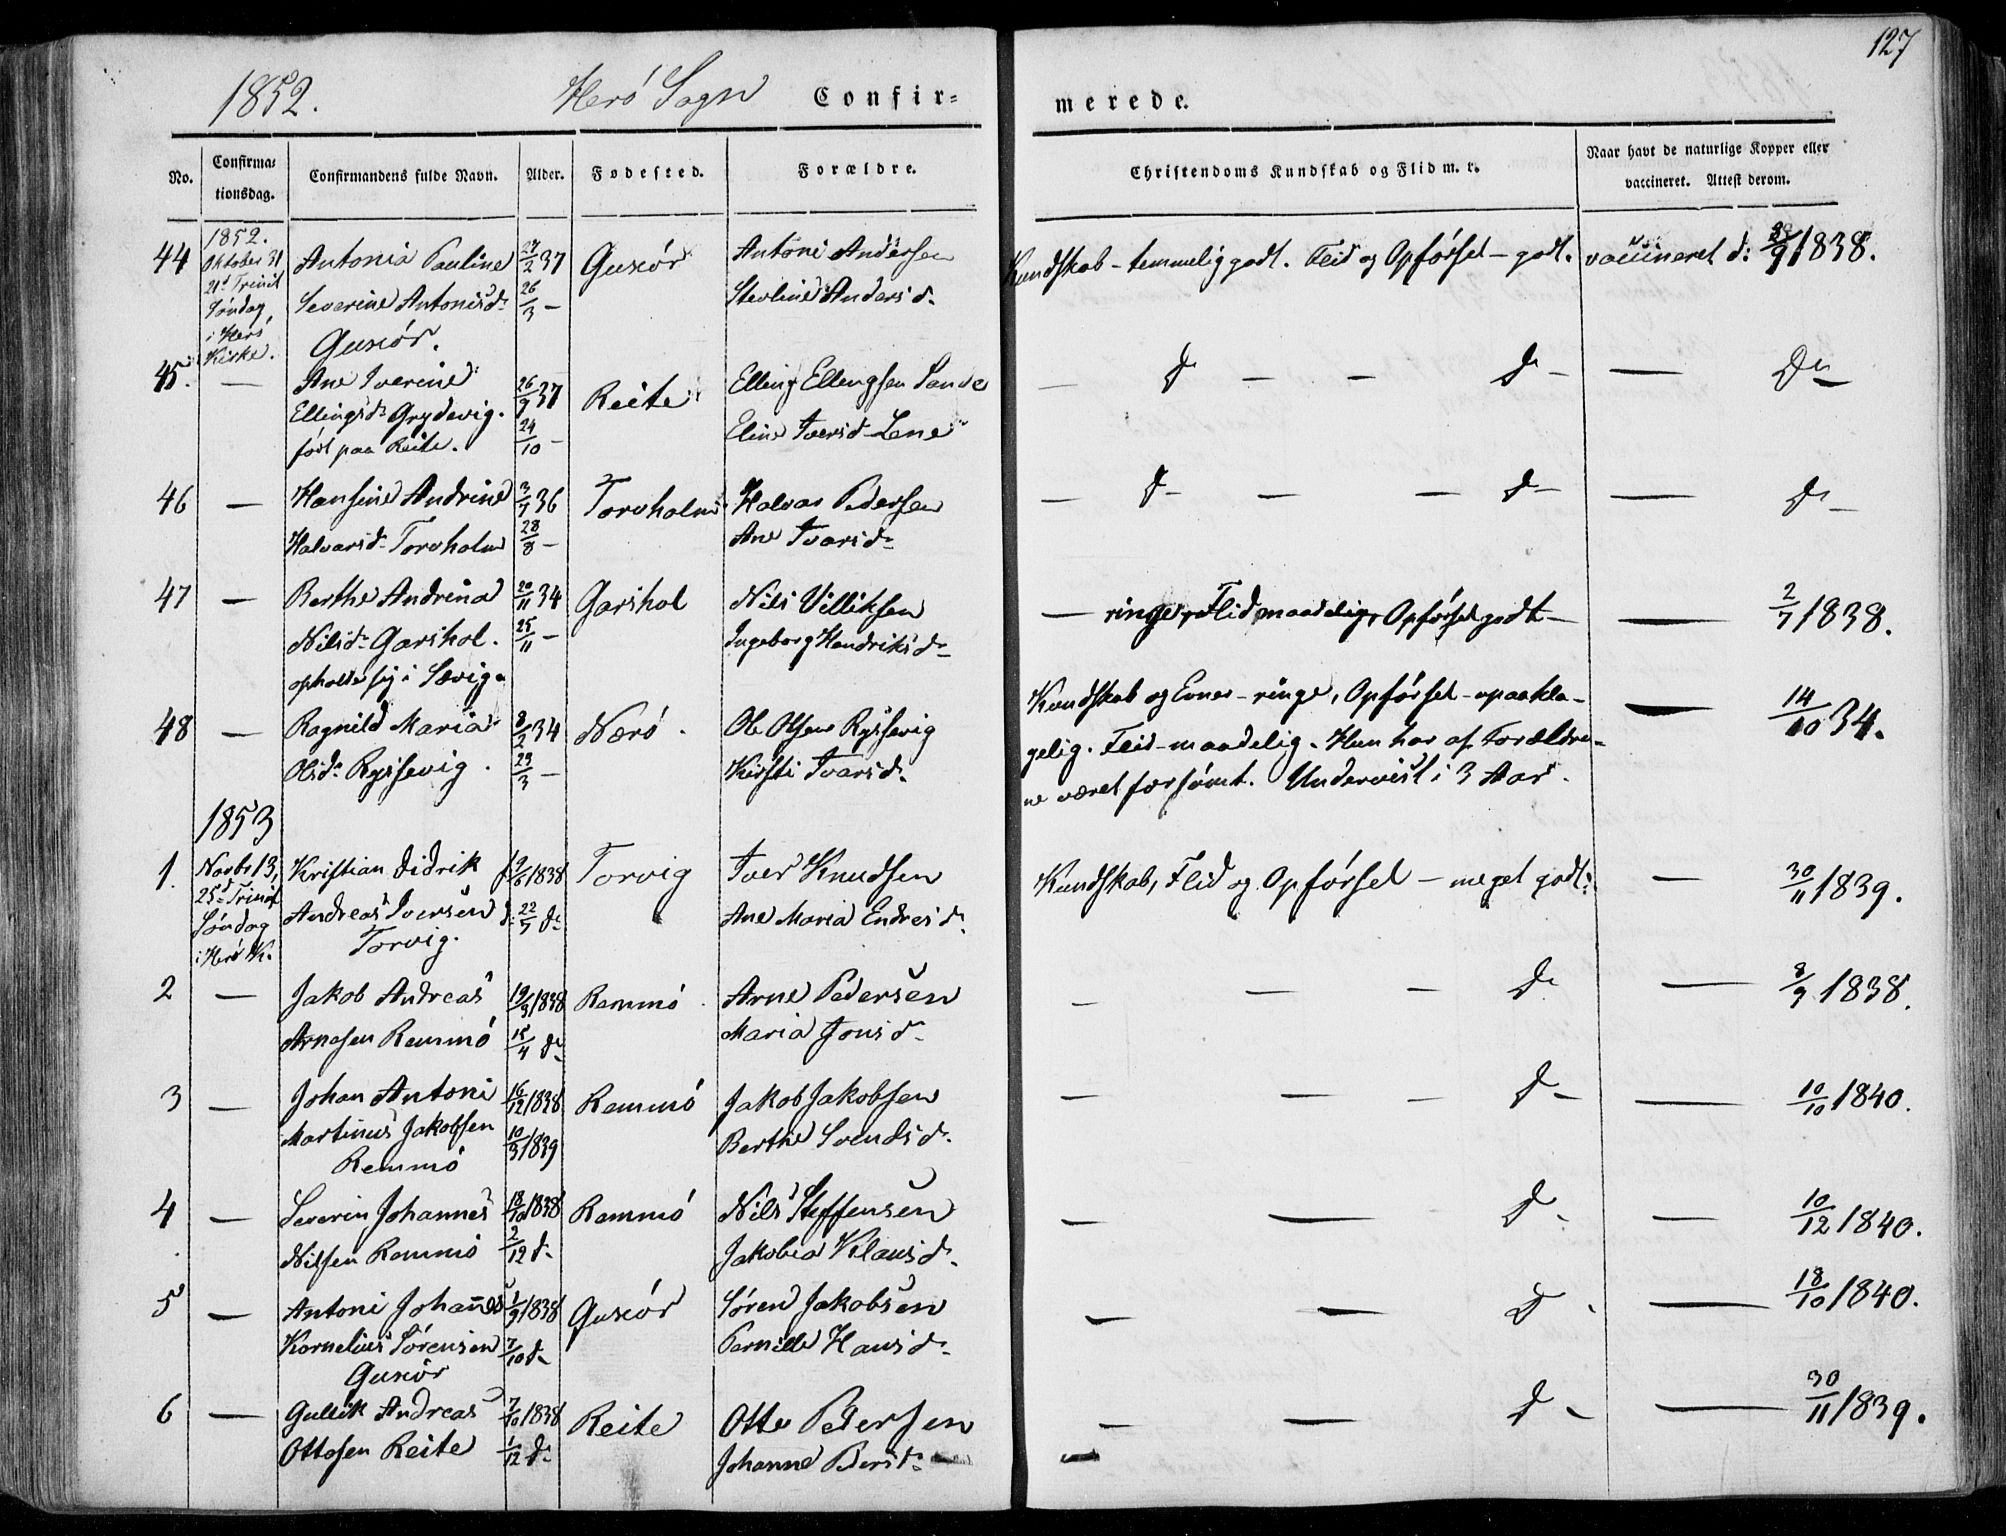 127
1852. Herö Sogn Confir= merede.
No. Confirma= tionsdag. Confirmandens fulde Navn. Alder. Fødested. Forældre. Christendoms Kundskab og Flid m. v. Naar havt de naturlige Kopper eller vaccineret. Attest derom.
44 1852. Antonia Pauline 27/2 37 Guskör Antoni Andersen Kundskab – temmelig godt. Flid og Opförsel – godt. vaccineret d: /9 1838.
Oktober 31
21d Trinit Severine Antonisd. 26/3 – Stevline Andersd.
Söndag, Guskör.
i Herö
Kirke.
45. — Ane Iverine 26/9 37 Reite Elling Ellingsen Sande — d — — d – — Do
Ellingsd. Grydevig. 24/10 – Eline Iversd. Lene
født paa Reite.
46 — Hansine Andrine 3/7 36 Torvholm Halvar Pedersen — d – — — d – — d –
Halvarsd. Torvholm 28/8 – Ane Ivarsd.
47 — Berthe Andrina 20/11 34 Garshol Nils Villiksen — ringe, Flid maadelig, Opförsel godt – — 2/7 1838.
Nilsd. Garshol. 25/11 – Ingeborg Hendriksd.
opholder sig i Sævig.
48 — Ragnild Maria 8/2 34 Nærö Ole Olsen Ryssevig Kundskab og Evner – ringe, Opförsel – upaakla- — 14/10 34.
Olsd. Ryssevig. 29/3 – Kirsti Ivarsd. gelig. Flid – maadelig. Hun har af Forældre-
ne været forsömt. Underviist i 3 Aar.
1853
1. Novbr 13, Kristian Didrik f 9/6 1838 Torvig Iver Knudsen Kundskab, Flid og Opförsel – meget godt. — 30/11 1839.
25d Trinit Andreas Iversen d: 22/7 d. Ane Maria Endresd.
Söndag Torvig.
i Herö K.
2 — Jakob Andreas 19/3 1838 Remmö Arne Pedersen — — — d. — 8/9 1838.
Arnesen Remmö 15/4 d. Maria Jonsd.
3 — Johan Antoni 16/12 1838 Remmö Jakob Jakobsen — — — d – — 10/10 1840.
Martinus Jakobsen 10/3 1839 Berthe Svendsd.
Remmö
4 — Severin Johannes 18/10 1838 Remmö Nils Steffensen — — d. — 10/12 1840.
Nilsen Remmö 2/12 d. Jakobia Klausd.
5 — Antoni Johannes 1/9 1838 Guskör Sören Jakobsen — — d. — 18/10 1840.
Kornelius Sörensen 7/10 d. Pernille Hansd.
Guskör
6 — Gullik Andreas 7/10 1838 Reite Otte Petersen — — d – — 30/11 1839.
Ottosen Reite 1/12 d. Johanne Persd.